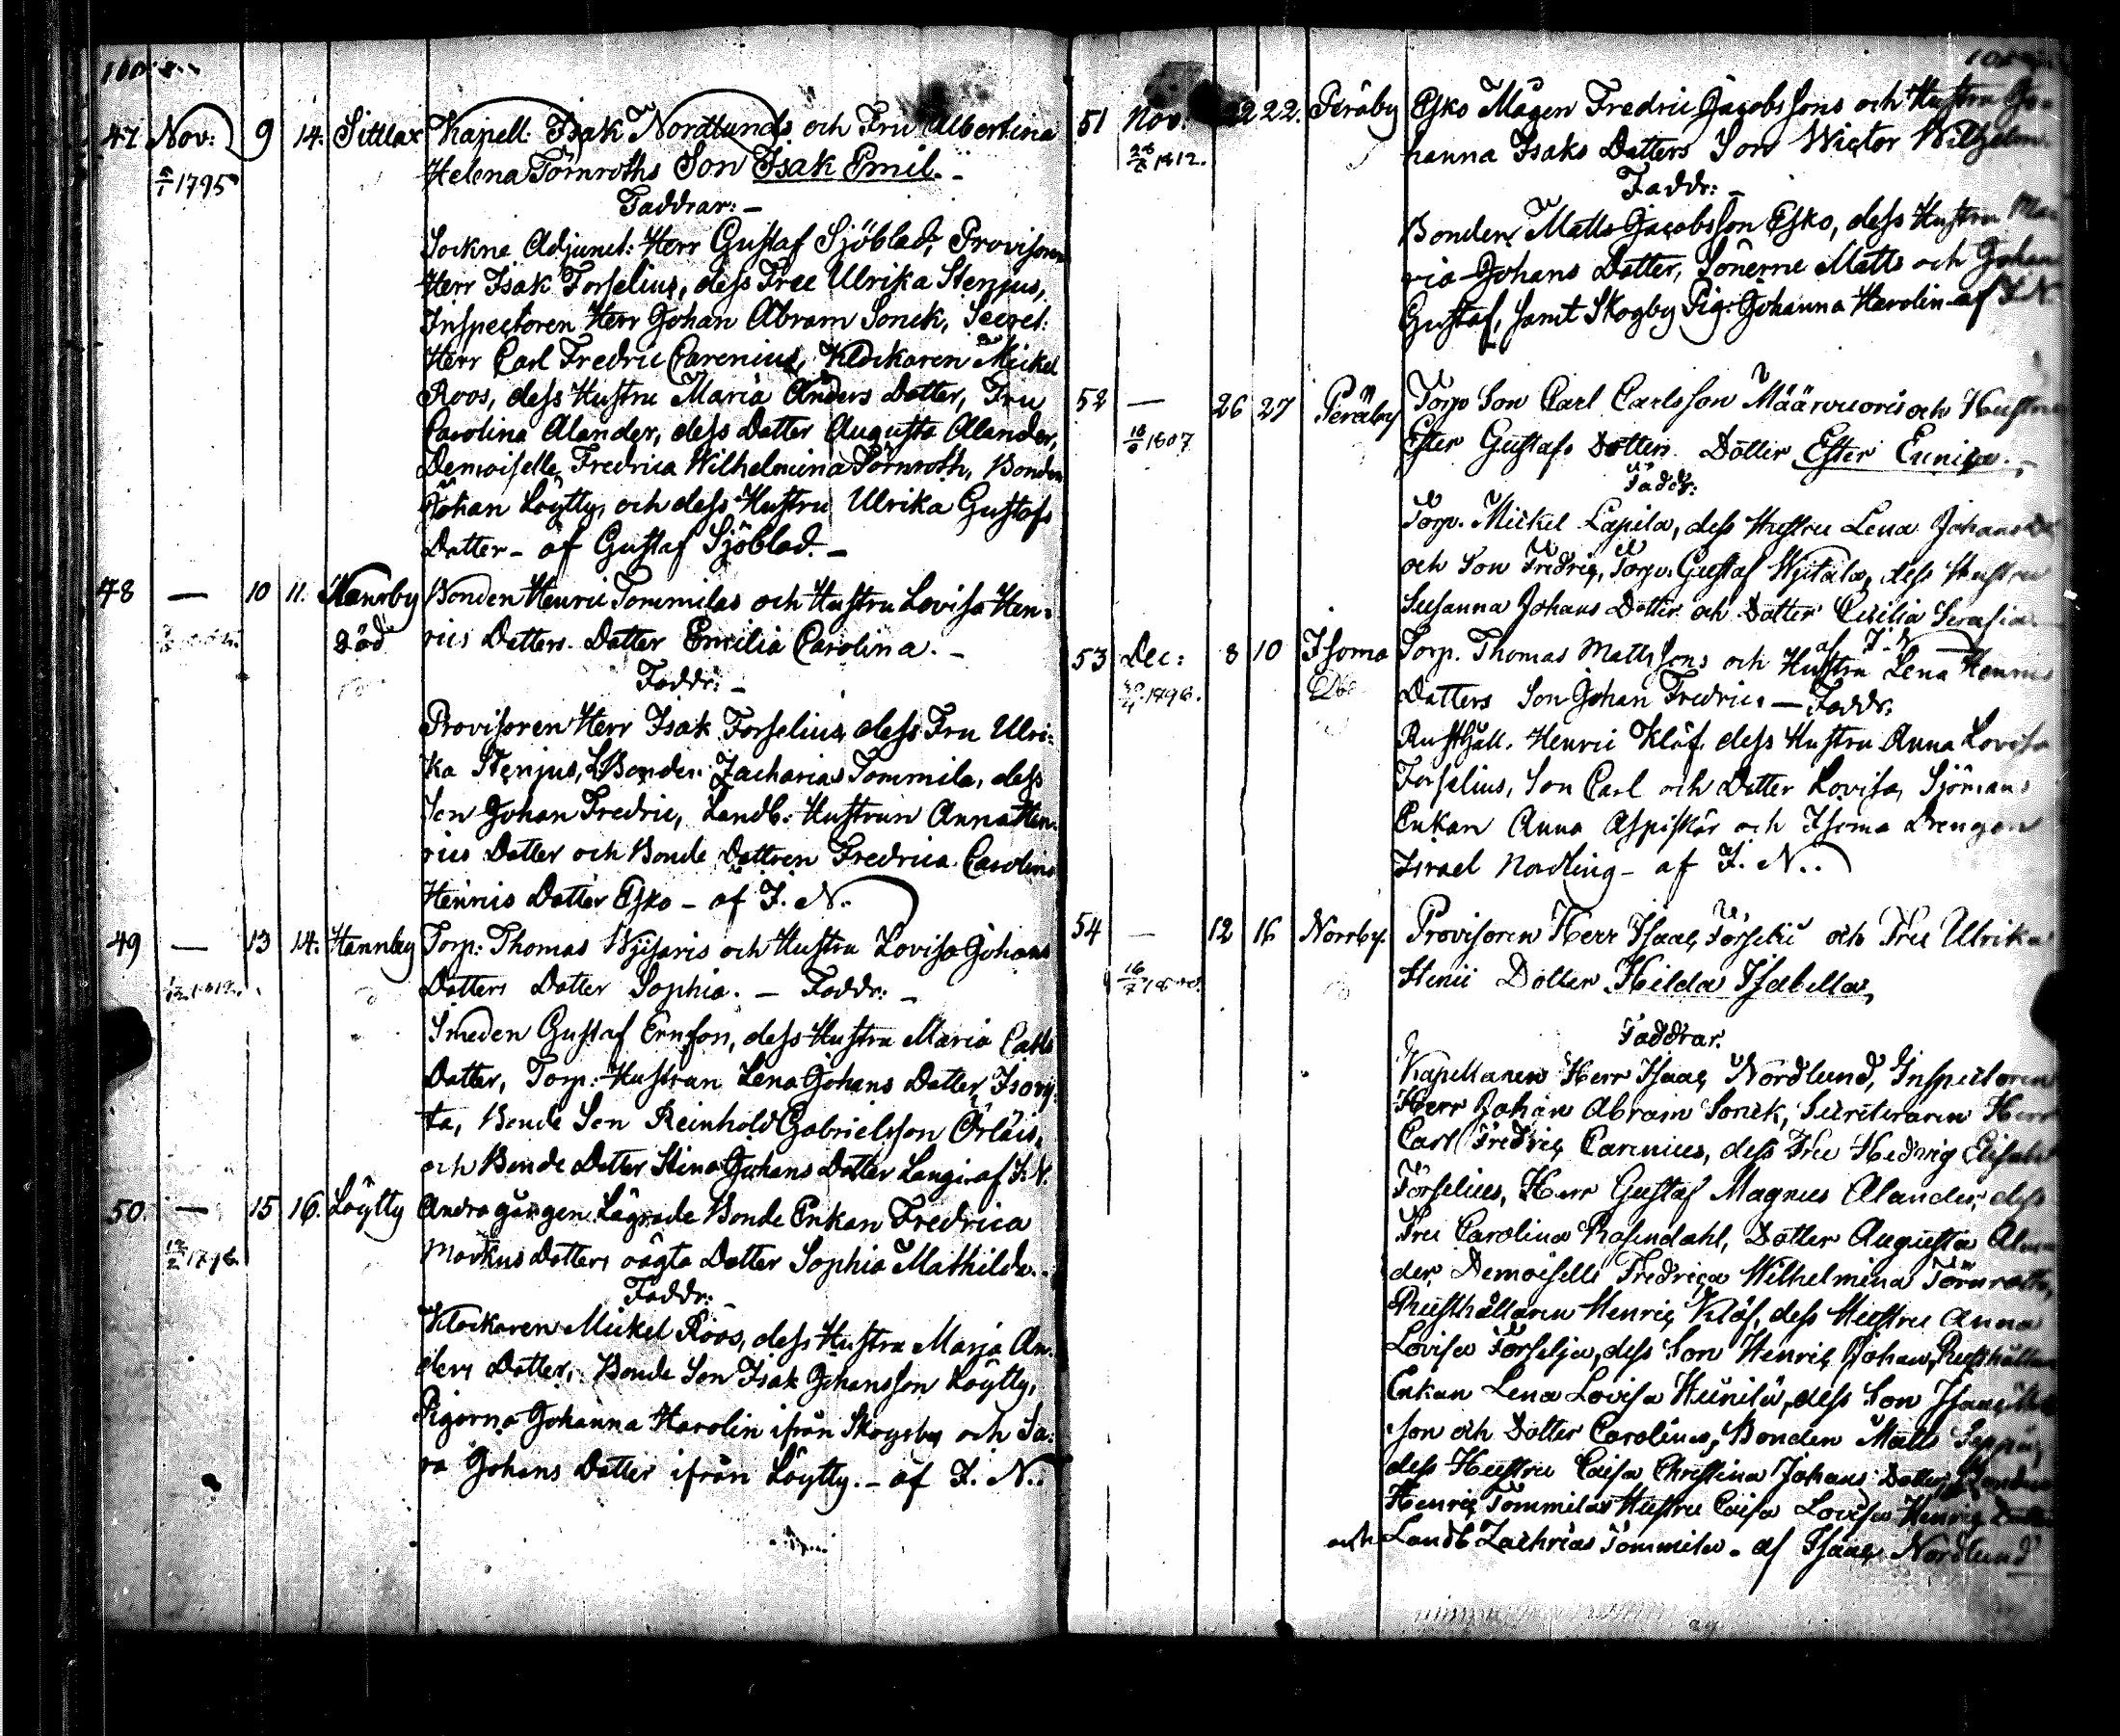 47. Nov: 9 14. Sittlax Kapell. Isak Nordlunds och Fru Albertina
1795 Helena Törnroths Son Isak Emil. -
Faddrar: -
Sockne Adjunct: Herr Gustaf Sjöblad, Provisoren
Herr Isak Forselius, dess Frue Ulrika Stenjus,
Inspectoren Herr Johan Abram Sonck, Secret:
Herr Carl Fredric Carenius, Klockaren Mickel
Roos, dess Hustru Maria Anders Dotter, Fru
Carolina Alander, dess Dotter Augusta Alander,
Demoiselle Fredrica Wilhelmina Törnroth, Bonden
Johan Löytty, och dess Hustru Ulrika Gustafs
Dotter - af Gustaf Sjöblad. -
48 — 10 11. Bonden Henric Tommilas och Hustru Lovisa Hen-
Död rics Dotters Dotter Emilia Carolina. -
Faddr: -
Provisoren Herr Isak Forselius dess Fru Ulri-
ka Stenjus, Bonden Zacharias Tommila, dess
Son Johan Fredric, Landb. Hustrun Anna Hen-
rics Dotter och Bonde Dottren Fredrica Carolina
Henrics Dotter Esko - af I. N.
49 — 13 14. Hannby Torp: Thomas och Hustru Lovisa Johans
Dotters Dotter Sophia. - Faddr: -
Smeden Gustaf Ernson, dess Hustru Maria Carls
Dotter, Torp: Hustrun Lena Johans Dotter
ta, Bonde Son Reinhold Gabrielsson
och Bonde Dotter Stina Johans Dotter Langi af I. N.
50. — 15 16. Löytty Andra gången Lägrade Bonde Enkan Fredrica
Markus Dotters oägta Dotter Sophia Mathilda.
Faddr:
Klockaren Mickel Roos, dess Hustru Maria An-
ders Dotter, Bonde Son Isak Johansson Löytty,
Pigorna Johanna Harolin ifrån Skogsby och Sa-
ra Johans Dotter ifrån Löytty. - af I. N.
51 Nov. 22 22. Peräby Esko Mågen Fredric Jacobssons och Hustru Jo-
1812. hanna Isaks Dotters Son Wictor Wilhelm
Faddr: -
Bonden Matts Jacobsson Esko, dess Hustru Ma-
ria Johans Dotter, Sönerne Matts och Johan
Gustaf, samt Skogby Pig: Johanna Harolin af I. N.
52 — 26 27 Peräby Torp Son Carl Carlsson Määrvuoris och Hustru
1807 Ester Gustafs Dotters Dotter Ester Eunica. -
Faddr:
Torp. Mickel Lapila, dess Hustru Lena Johans
och Son Fredric, Torp. Gustaf dess Hustru
Susanna Johans Dotter och Dotter Cecilia Serafia
af I. N
53 Dec: 8 10 Isoma Torp. Thomas Mattssons och Hustru Lena Henrics
Dotters Son Johan Fredric. — Faddr:
Rusthåll. Henric Kläf, dess Hustru Anna Lovisa
Forselius, Son Carl och Dotter Lovisa, Sjömans
Enkan Anna och Isoma Drengen
Israel Nordling - af I. N..
54 — 12 16 Norrby. Provisoren Herr Isaac Forselii och Frue Ulrika
Stenii Dotter Hilda Isabella,
Faddrar.
Kapellanen Herr Isaac Nordlund, Inspectoren
Herr Johan Abram Sonck, Secreteraren Herr
Carl Fredric Carenius, dess Frue Hedvig Elisabet
Forselius, Herr Gustaf Magnus Alander, dess
Frue Carolina Rosendahl, Dotter Augusta Alan-
der, Demoiselle Fredrica Wilhelmina Törnroth,
Rusthållaren Henric Kläf, dess Hustru Anna
Lovisa Forselia, dess Son Henric Johan, Rusthållare
Enkan Lena Lovisa dess Son Isaac
son och Dotter Carolina, Bonden Matts
dess Hustru Caisa Christina Johans Dotter,
Henric Tommilas Hustru Caisa Lovisa Henrics Dotter
och Landb Zachrias Tommila. af Isaac Nordlund